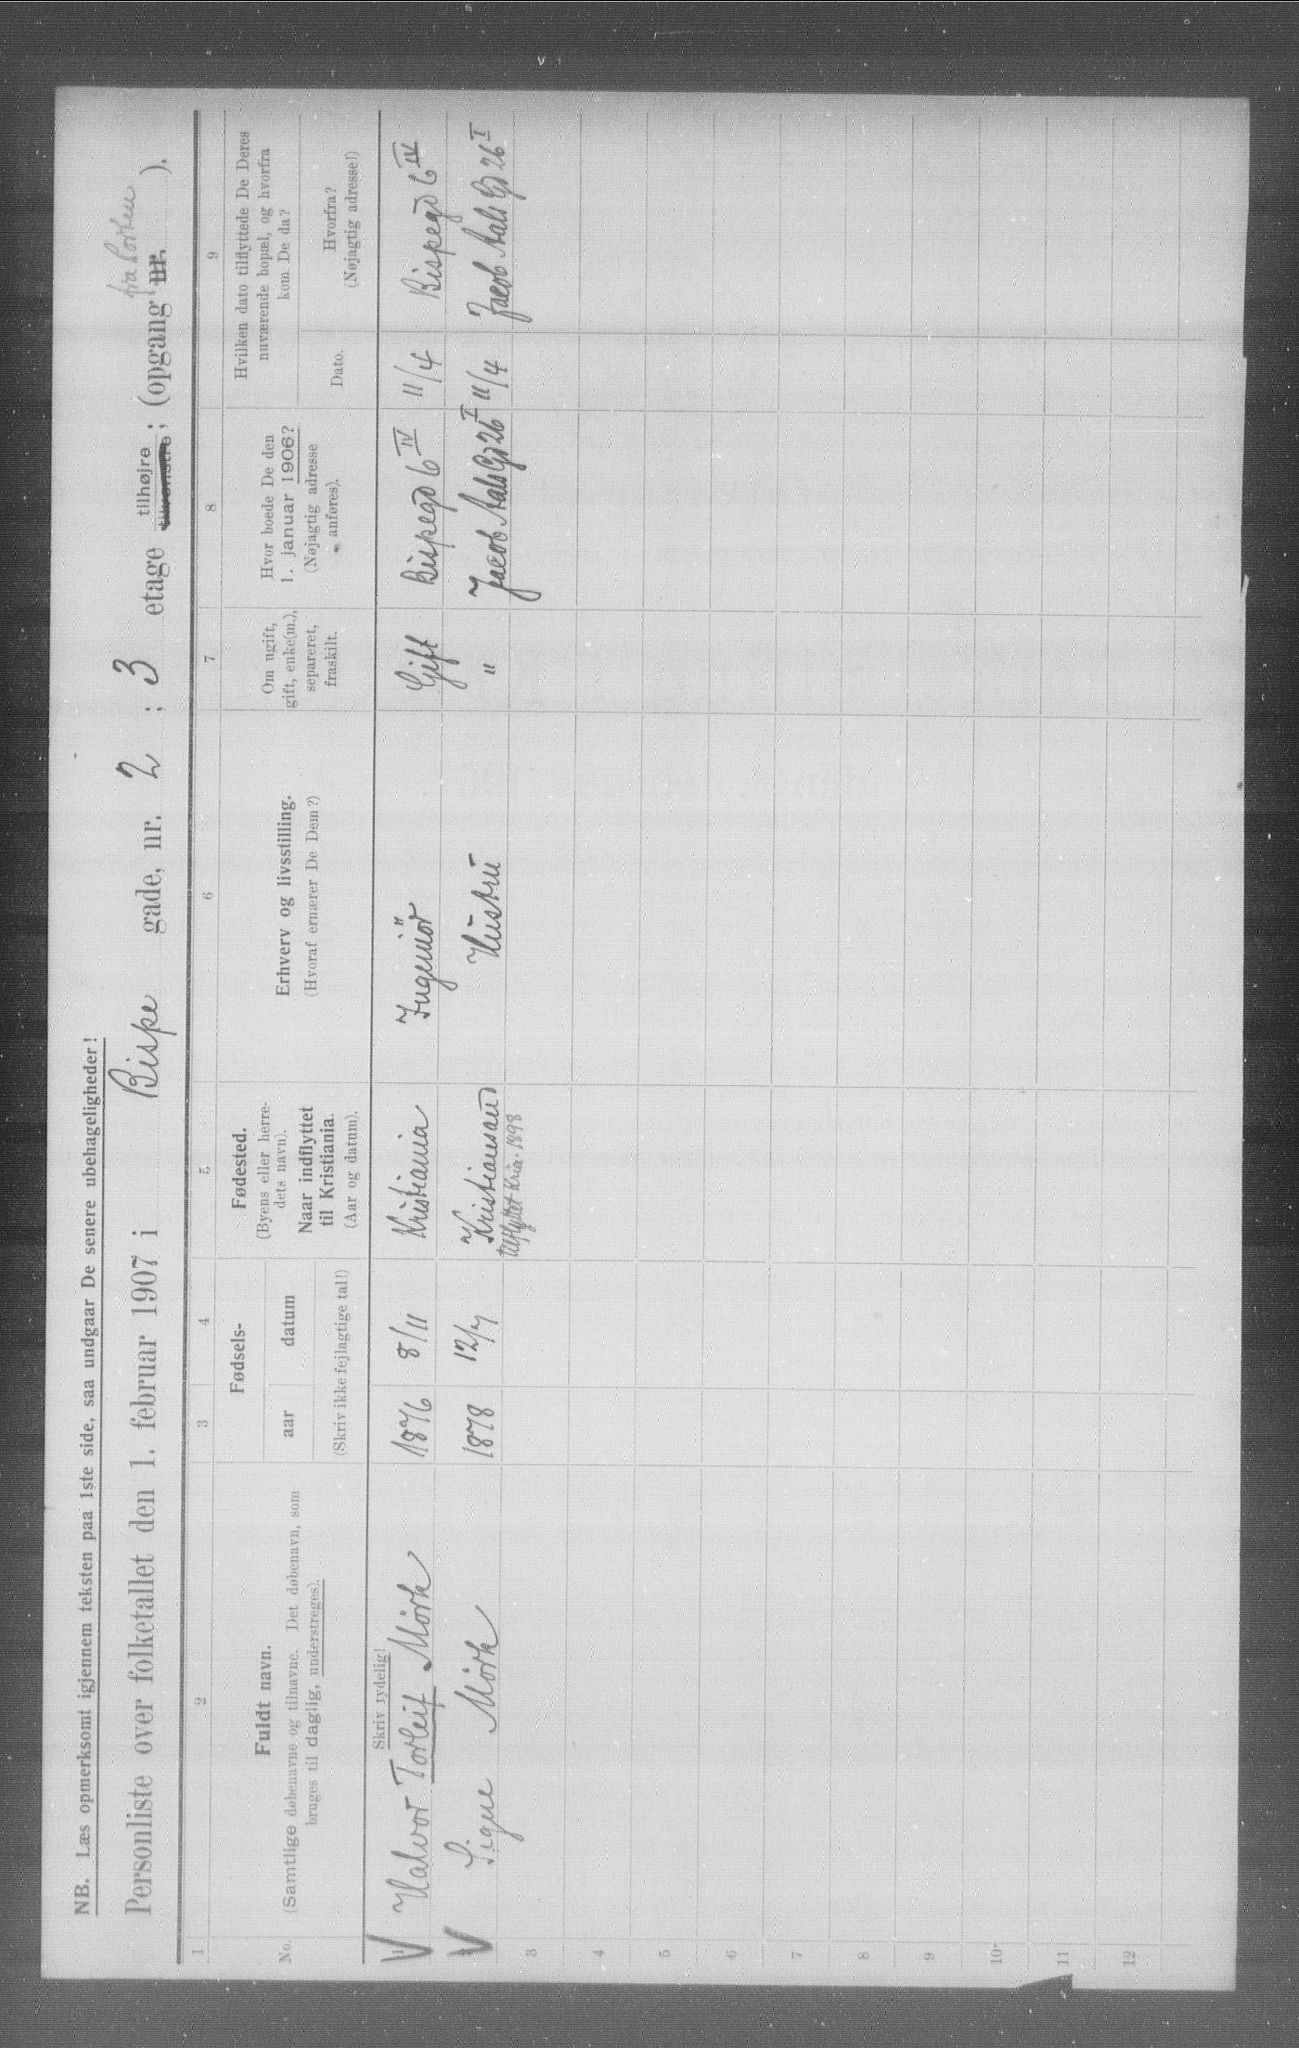 NB. Læs opmerksomt igjennem teksten paa 1ste side, saa undgaar De senere ubehageligheder!
Personliste over folketallet den 1. februar 1907 i Bispe gade, nr. 2; 3 etage tilhøjre tilvenstre; (opgang nr. fra Porten).
1 2 3 4 5 6 7 8 9
No.
Fuldt navn.
(Samtlige døbenavne og tilnavne. Det døbenavn, som
bruges til daglig, understreges).
Fødsels-
aar datum
(Skriv ikke fejlagtige tal!)
Fødested.
(Byens eller herre-
dets navn).
Naar indflyttet
til Kristiania.
(Aar og datum).
Erhverv og livsstilling.
(Hvoraf ernærer De Dem?)
Om ugift,
gift, enke(m.),
separeret,
fraskilt.
Hvor boede De den
1. januar 1906?
(Nøjagtig adresse
anføres).
Hvilken dato tilflyttede De Deres
nuværende bopæl, og hvorfra
kom De da?
Dato.
Hvorfra?
(Nøjagtig adresse!)
Skriv tydelig!
V 1 Halvor Torleif Mörk 1876 8/11 Kristiania Ingeniör Gift Bispegd 6 IV 11/4 Bispegd 6 IV
V 2 Signe Mörk 1878 12/7 Kristiansand Hustru " Jacob Aals Gd 26 I 11/4 Jacob Aals Gd 26 I
tilflyttet Kria. 1898
3
4
5
6
7
8
9
10
11
12